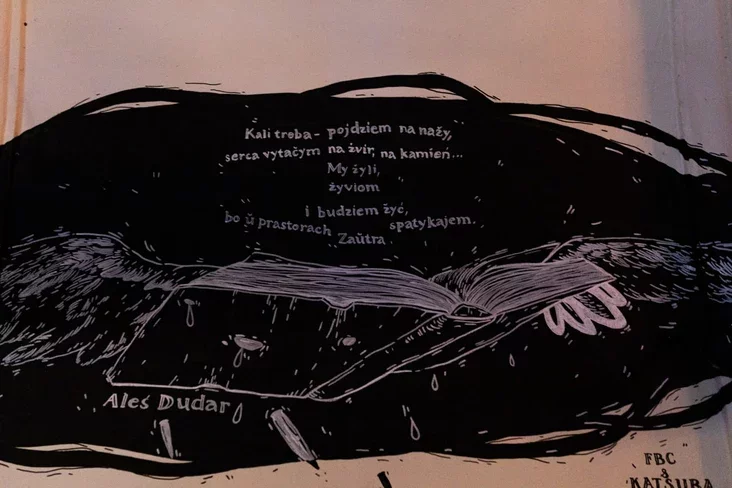 Kali treba - pojdziem na nažy,
serca vytačym na žvir, na kamień...
My žyli,
žyviom
i budziem žyć,
bo ŭ prastorach spatykajem
Zaŭtra.
Aleś Dudar
FBC
&
KATSUBA